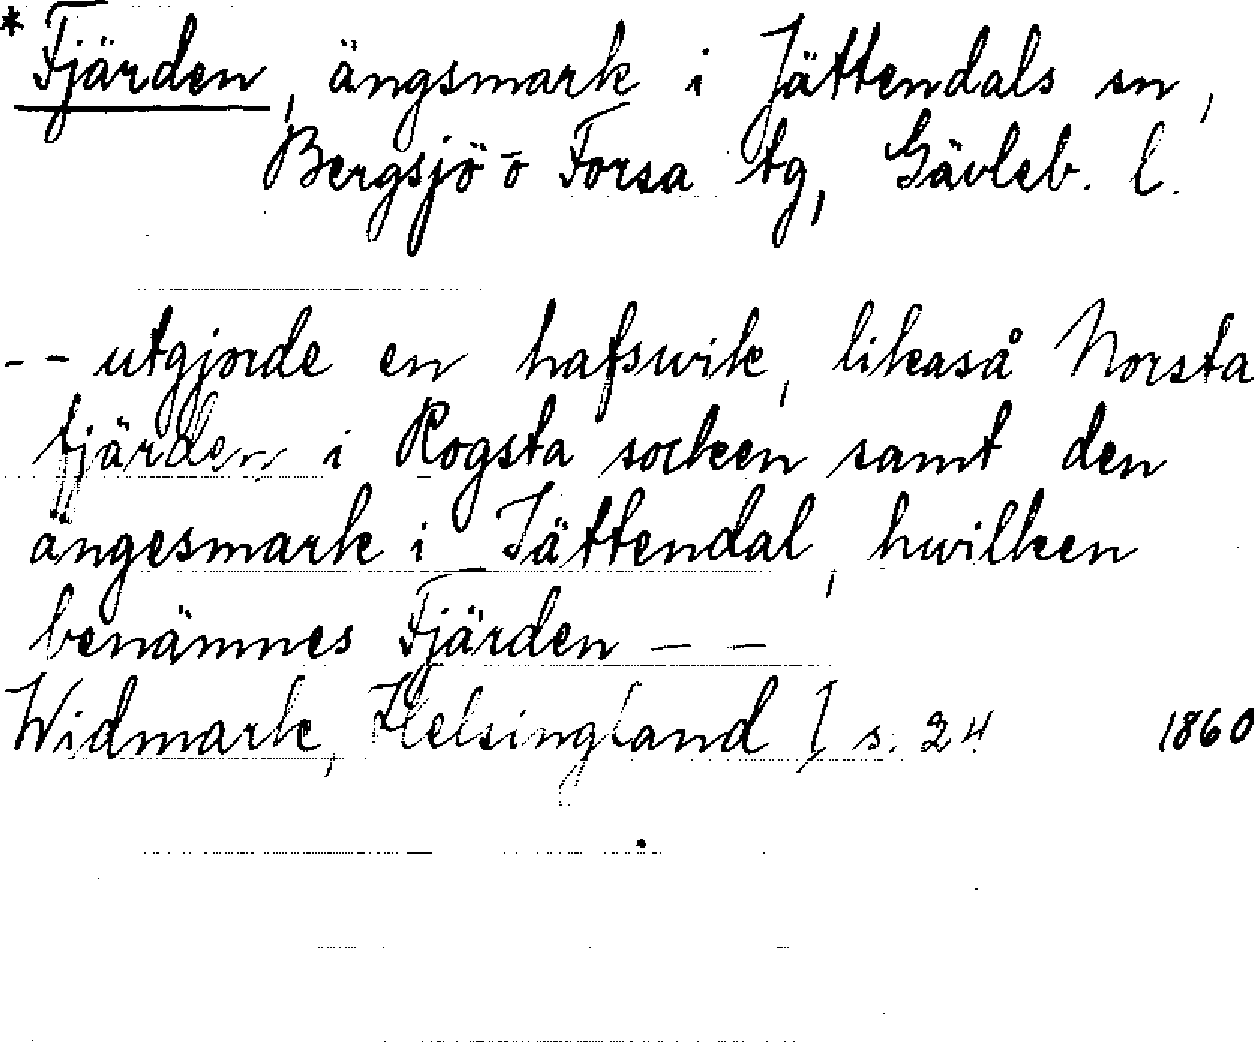 * Fjärden, ängsmark i Jättendals sn,
Bergsjö o Forsa tg, Gävleb. l.
-- utgjorde en hafswik, likaså Norsta
fjärden i Rogsta socken samt den
ängesmark i Jättendal, hwilken
benämnes Fjärden --
Widmark, Helsingland I s. 24 1860